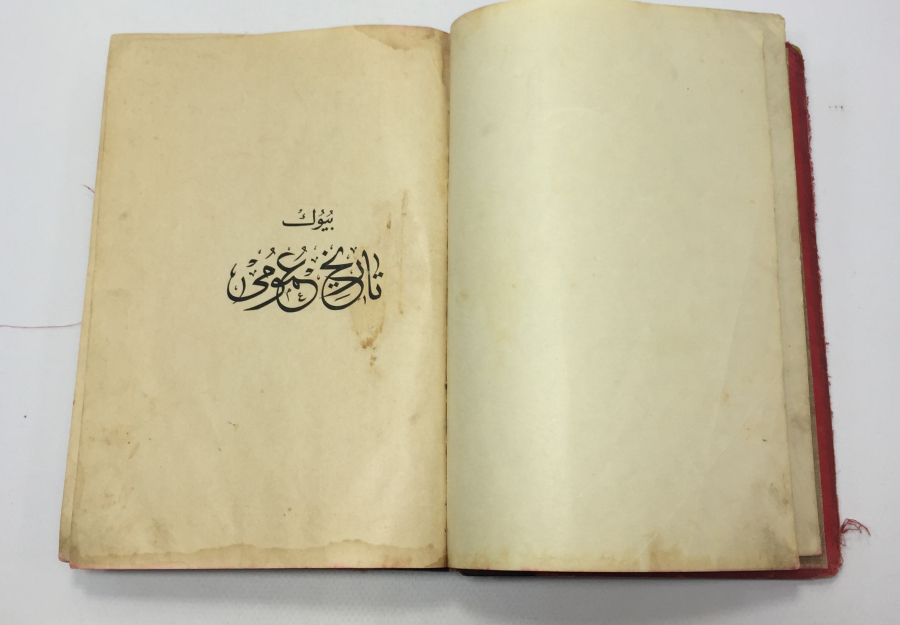 بُيُوك
تاريخ عُمُومى